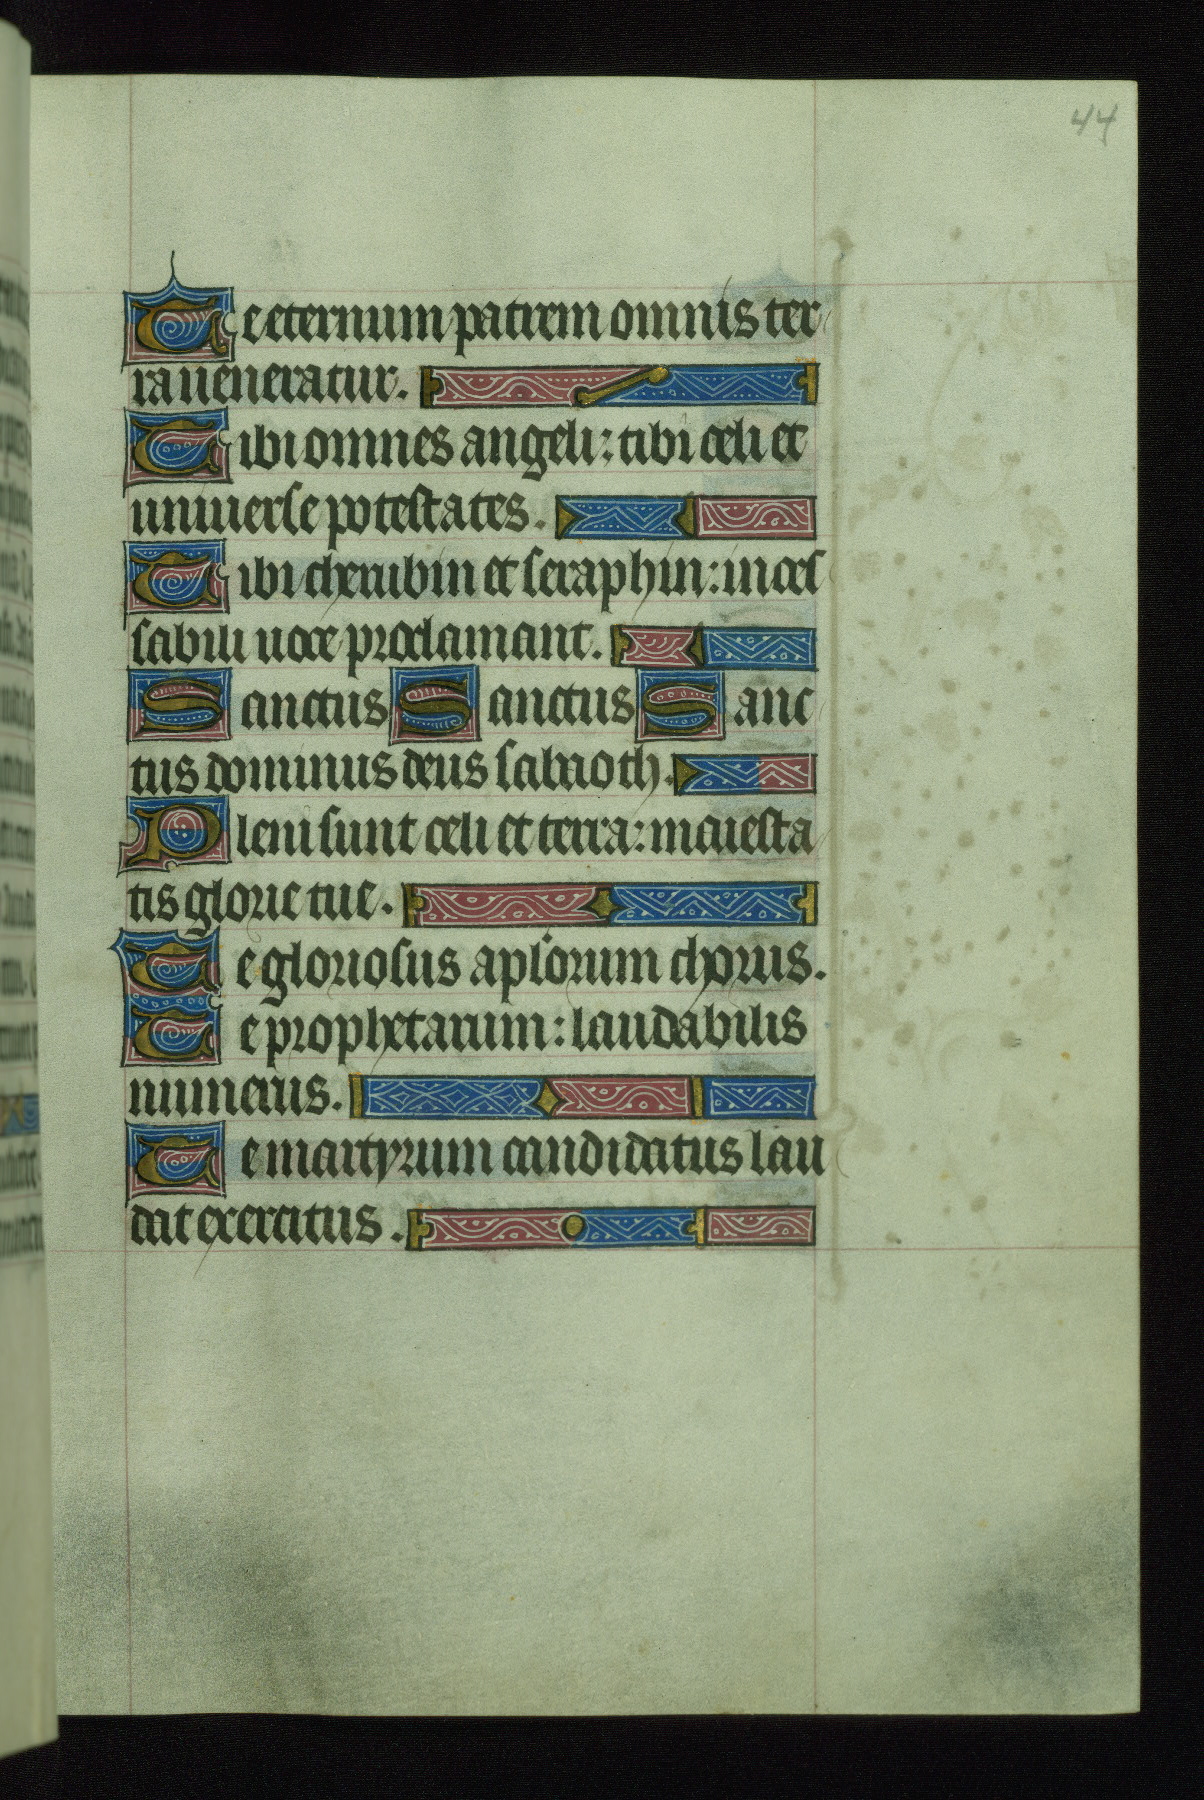 44
Te eternum patrem omnis ter
ra ueneratur.
Tibi omnes angeli: tibi celi et
uniuerse potestates.
Tibi cherubin et seraphin: inces
sabili uoce proclamant.
Sanctus Sanctus Sanc
tus dominus deus sabaoth.
Pleni sunt celi et terra: maiesta
tis glorie tue.
Te gloriosus aplorum chorus.
Te prophetarum: laudabilis
numerus.
Te martyrum candidatus lau
dat exercitus.